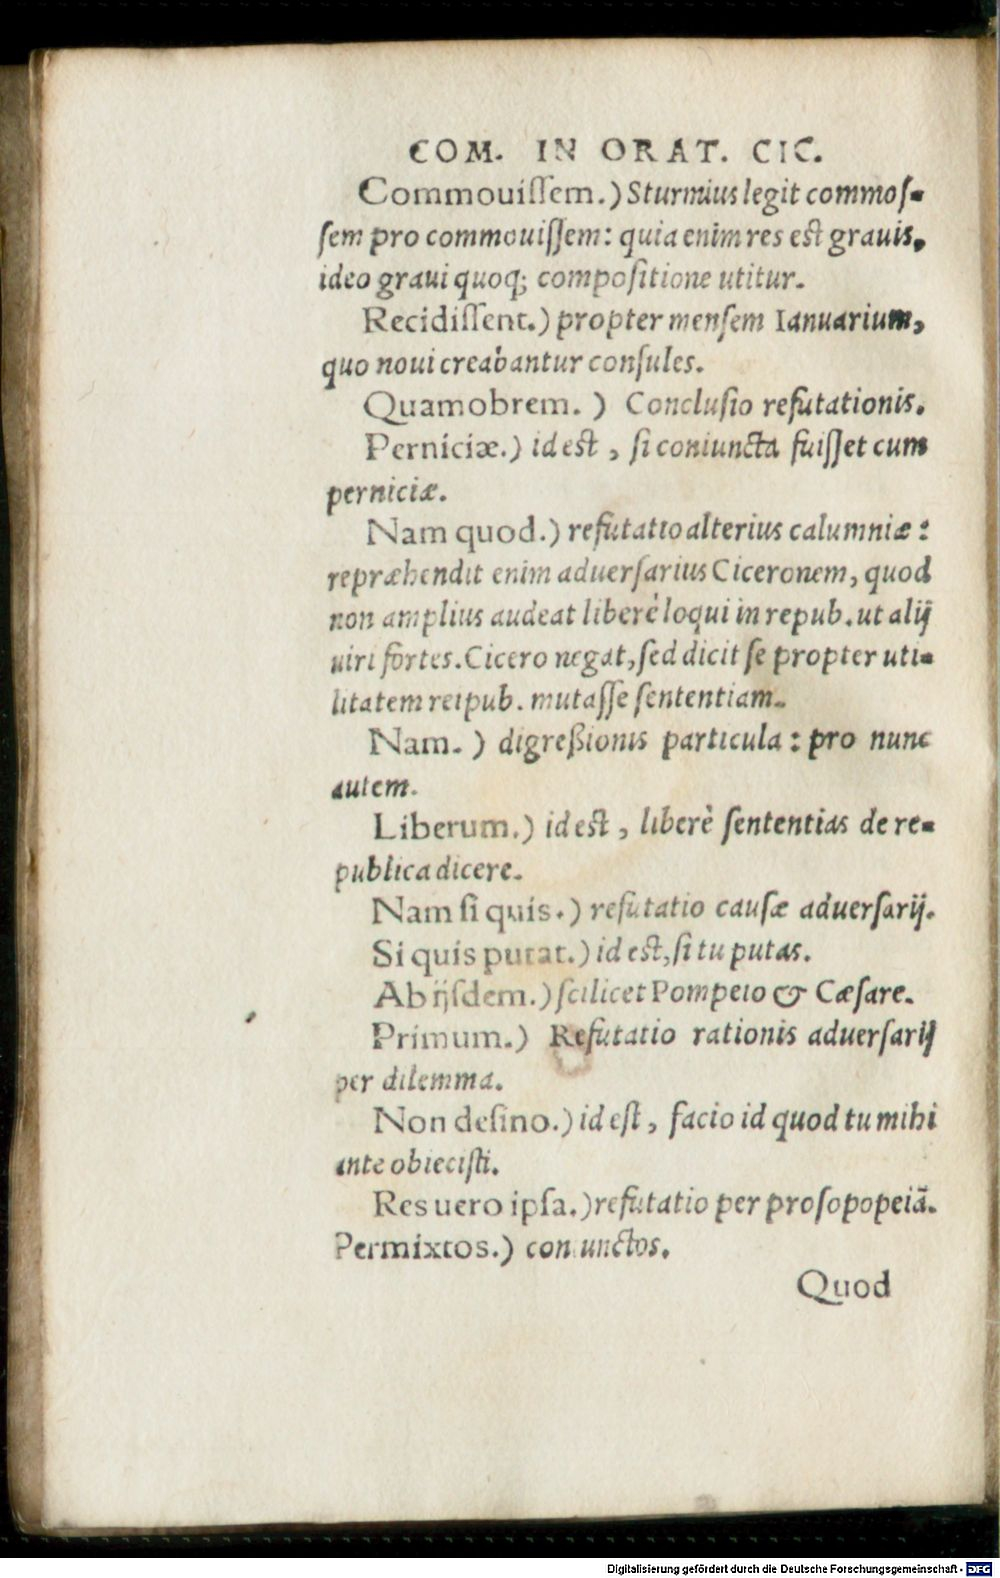 COM. IN ORAT. CIC.
Commouiſſem.) Sturmius legit commoſ-
ſem pro commouiſſem: quia enim res est grauis,
ideo graui quoq; compoſitione utitur.
Recidiſſent.) propter menſem Ianuarium,
quo noui creabantur conſules.
Quamobrem. ) Concluſio refutationis.
Perniciæ.) id est , ſi coniuncta fuiſſet cum
perniciæ.
Nam quod.) refutatio alterius calumniæ:
repræhendit enim aduerſarius Ciceronem, quod
non amplius audeat liberè loqui in repub. ut alij
uiri fortes. Cicero negat, ſed dicit ſe propter uti-
litatem reipub. mutaſſe ſententiam.
Nam. ) digreßionis particula: pro nunc
autem.
Liberum.) id est , liberè ſententias de re-
publica dicere.
Nam ſi quis.) refutatio cauſæ aduerſarij.
Si quis putat.) id est, ſi tu putas.
Ab ijſdem.) ſcilicet Pompeio & Cæſare.
Primum.) Refutatio rationis aduerſarij
per dilemma.
Non deſino.) id eſt , facio id quod tu mihi
ante obieciſti.
Res uero ipſa.) refutatio per proſopopeiã.
Permixtos.) con unctos.
Quod
Digitalisierung gefördert durch die Deutsche Forschungsgemeinschaft - DFG